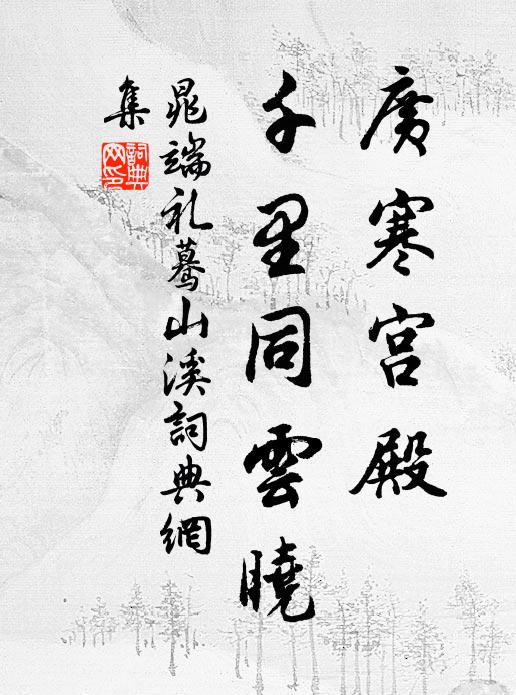 廣寒宮殿
千里同雲曉
晁端礼驀山溪詞典網
集
詞典
网印